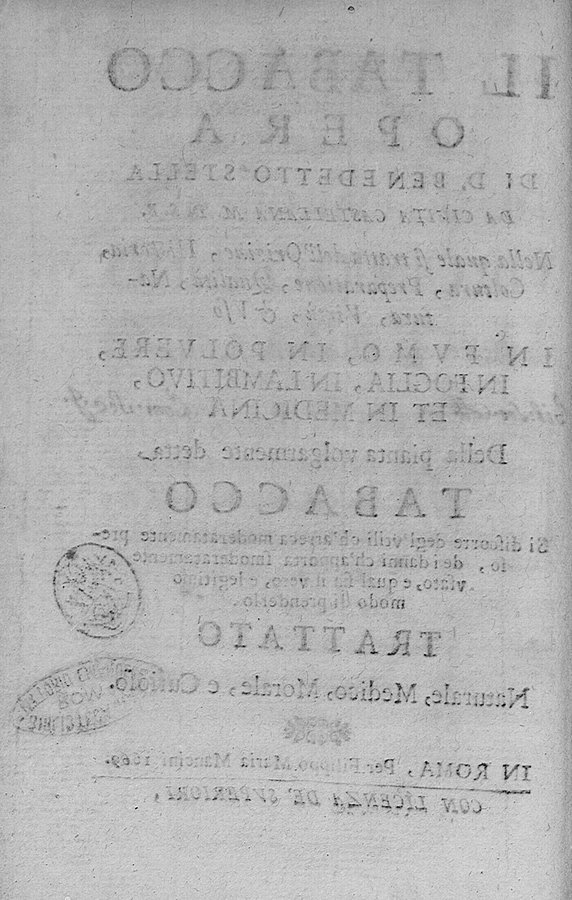 IL TABACCO
OPERA
DI D. BENEDETTO STELLA
DA CIVITA CASTELLANA
Nella quale si tratta dell'Origine, Historia,
Coltura, Preparatione, Qualità, Na-
tura, Virtù, & Vso
IN FVMO, IN POLVERE,
IN FOGLIA, IN LAMBITIVO,
ET IN MEDICINA
Della pianta volgarmente detta
TABACCO
Si discorre degl'vtili ch'arreca moderatamente pre-
so, dei danni ch'apporta smoderatamente
vsato, e qual sia il vero, e legitimo
modo di prenderlo.
TRATTATO
Naturale, Medico, Morale, e Curioso.
IN ROMA, Per Filippo Maria Mancini 1669.
CON LICENZA DE' SVPERIORI,